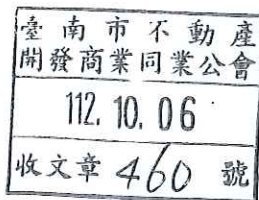 臺南市不動產
開發商業同業公會
112.10.06
收文章460號